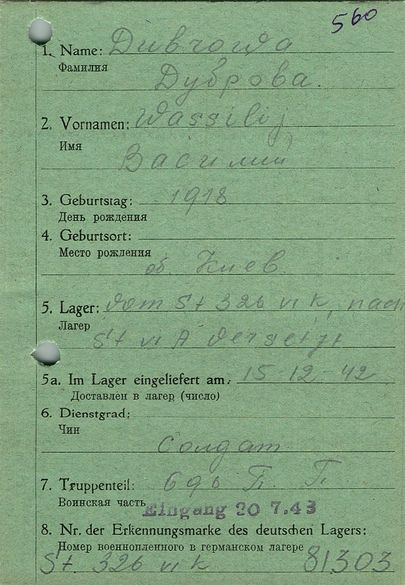 560
1. Name: Dubrowa
Фамилия
Дуброва.
2. Vornamen: Wassilij
Имя
Василий
3. Geburtstag: 1918
День рождения
4. Geburtsort:
Место рождения
об. Киев.
5. Lager: vom St 326 VI K, nach
Лагерь
St VI A versetzt
5a. Im Lager eingeliefert am: 15-12-42
Доставлен в лагер (число)
6. Dienstgrad:
Чин
Солдат
7. Truppenteil: 696 П. П.
Воинская часть Eingang 20 7.43
8. Nr. der Erkennungsmarke des deutschen Lagers:
Номер военнопленного в германском лагере
St 326 VI K 81303